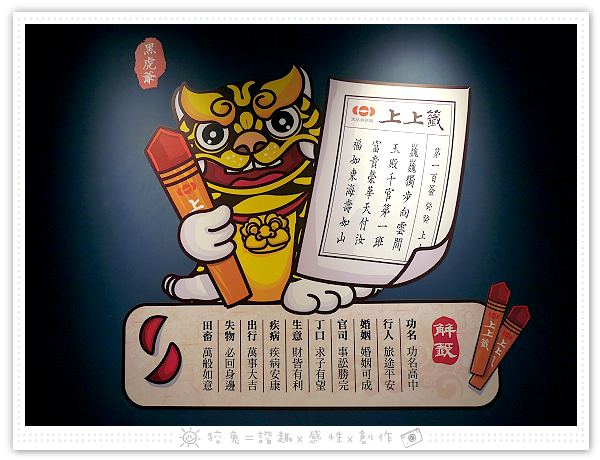 黑虎爺
上上籤
第一首簽 癸癸 上上
巍巍獨步向雲間
玉殿千官第一班
富貴榮華天付汝
福如東海壽如山
上
解籤
功名 功名高中
行人 旅途平安
婚姻 婚姻可成
官司 事訟勝完
丁口 求子有望
生意 財皆有利
疾病 疾病安康
出行 萬事大吉
失物 必回身邊
田畜 萬般如意
上上籤
上上
狡兔=諧趣x感性x創作